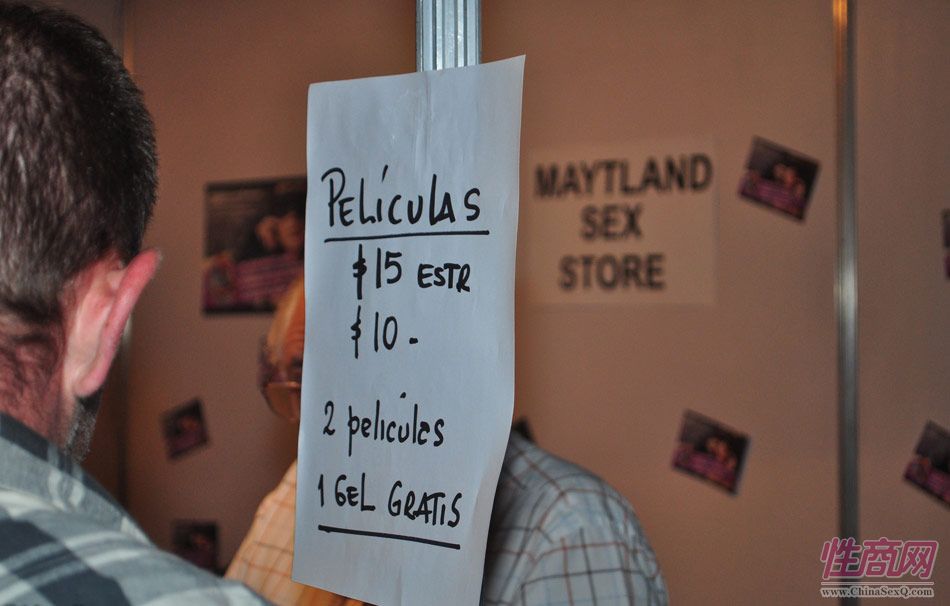 PELÍCULAS
$15 ESTR
$10-
2 películas
1 GEL GRATIS
MAYTLAND
SEX
STORE
性商网
www.ChinaSexQ.com